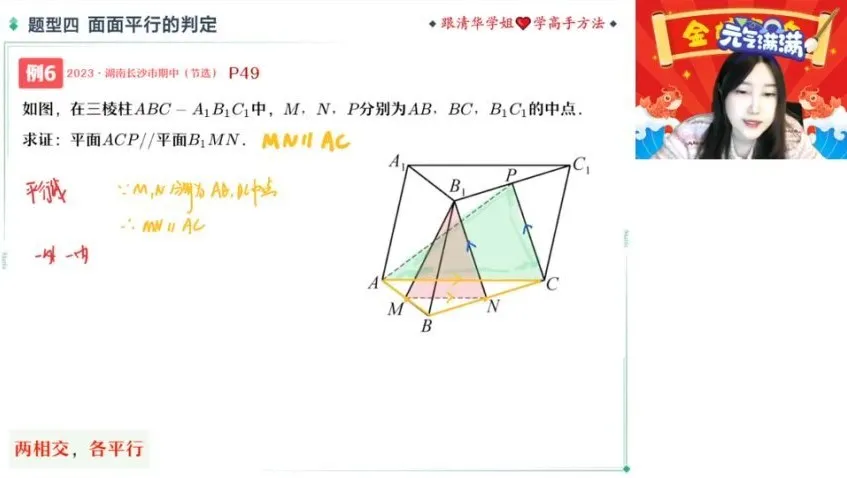 题型四 面面平行的判定
跟清华学姐❤学高手方法
元气满满
例6 2023·湖南长沙市期中(节选) P49
如图,在三棱柱ABC-A₁B₁C₁中,M,N,P分别为AB,BC,B₁C₁的中点.
求证:平面ACP//平面B₁MN. MN∥AC
平行线
∵M,N分别为AB,BC中点
∴MN∥AC
一外一内
A₁
B₁
P
C₁
A
C
M
N
B
两相交,各平行